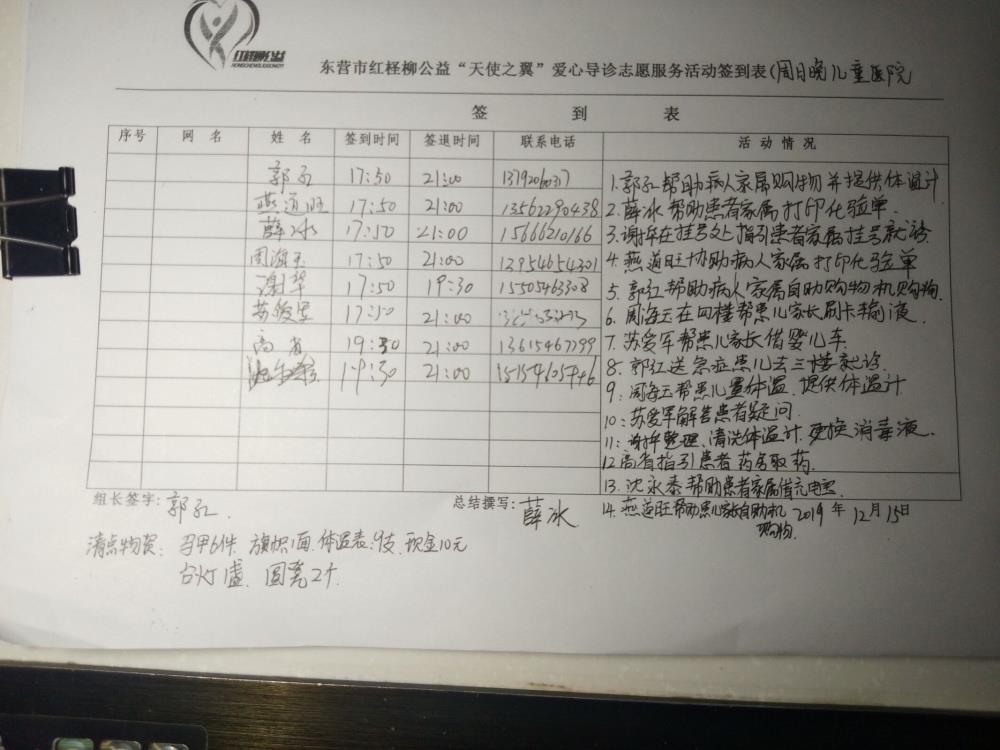 红柽柳公益
HONGCHENGLIUGONGYI
东营市红柽柳公益“天使之翼”爱心导诊志愿服务活动签到表(周日晚儿童医院
签 到 表
序号 网 名 姓 名 签到时间 签退时间 联系电话 活 动 情 况
郭红 17:50 21:00
燕道旺 17:50 21:00 13562290438
薛冰 17:50 21:00 15666210166
周海玉 17:50 21:00 13954654301
谢华 17:50 19:30 15505463308
苏爱军 17:50 21:00
高省 19:30 21:00 13615467799
19:30 21:00
1.郭红帮助病人家属购物并提供体温计
2.薛冰帮助患者家属打印化验单.
3.谢华在挂号处指引患者家属挂号就诊.
4.燕道旺协助病人家属打印化验单
5.郭红帮助病人家属自助购物机购物.
6.周海玉在四楼帮患儿家长刷卡输液.
7.苏爱军帮患儿家长借婴儿车.
8.郭红送急症患儿去三楼就诊.
9.周海玉帮患儿量体温.提供体温计.
10:苏爱军解答患者疑问.
11:谢华整理、清洗体温计.更换消毒液.
12高省指引患者药房取药.
13.沈永泰帮助患者家属借充电宝
14.燕道旺帮助患儿家长自助机购物.
组长签字:郭红. 总结撰写:薛冰 2019年12月15日
清点物资:马甲6件.旗帜1面.体温表:9支.现金10元
台灯1盏.圆凳2个.